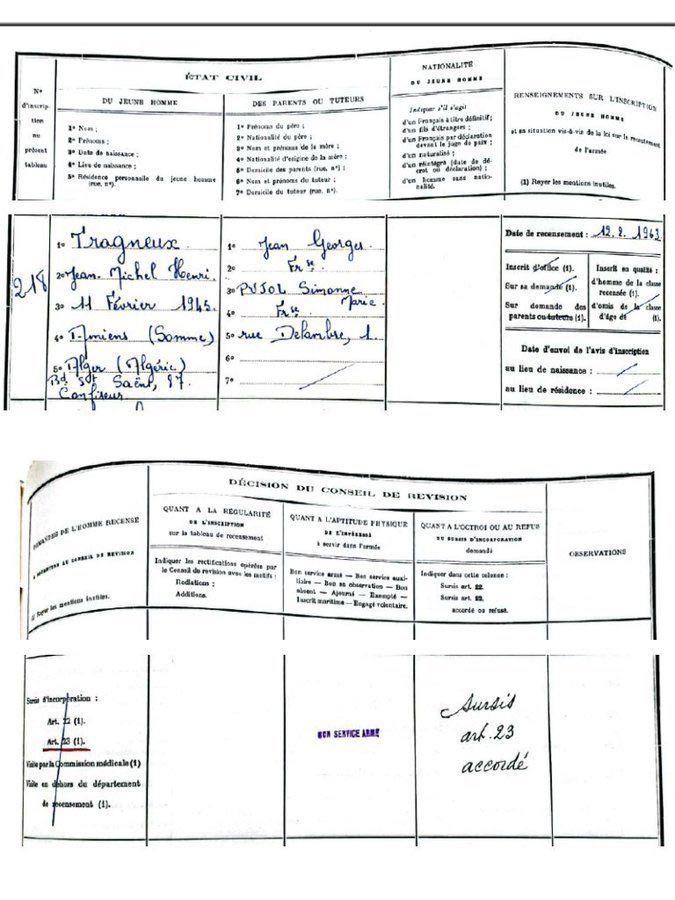 ÉTAT CIVIL
N° d'inscription au présent tableau
DU JEUNE HOMME
1° Nom ;
2° Prénoms ;
3° Date de naissance ;
4° Lieu de naissance ;
5° Résidence personnelle du jeune homme
(rue, n°).
DES PARENTS OU TUTEURS
1° Prénoms du père ;
2° Nationalité du père ;
3° Nom et prénoms de la mère ;
4° Nationalité d'origine de la mère ;
5° Domicile des parents (rue, n°) ;
6° Nom et prénoms du tuteur ;
7° Domicile du tuteur (rue, n°).
NATIONALITÉ
DU JEUNE HOMME
Indiquer s'il s'agit
d'un Français à titre définitif ;
d'un fils d'étrangers ;
d'un Français par déclaration
devant le juge de paix ;
d'un naturalisé ;
d'un réintégré (date de dé-
cret ou déclaration) ;
d'un homme sans natio-
nalité.
RENSEIGNEMENTS SUR L'INSCRIPTION
DU JEUNE HOMME
et sa situation vis-à-vis de la loi sur le recrutement
de l'armée
(1) Rayer les mentions inutiles.
218
1o Tragneux
2o Jean Michel Henri
3o 11 Février 1945
4o Amiens (Somme)
5o Alger (Algérie)
Bd St Saëns, 87
Confiseur
1o Jean Georges
2o Frse
3o PUJOL Simonne
Marie
4o Frse
5o rue Delambre, 1.
6o
7o
Date de recensement : 12.2.1963
Inscrit d'office (1).
Sur sa demande (1).
Sur demande des
parents ou tuteurs (1).
Inscrit en qualité :
d'homme de la classe
recensée (1).
d'omis de la classe
d'âge de (1).
Date d'envoi de l'avis d'inscription
au lieu de naissance :
au lieu de résidence :
DÉCISION DU CONSEIL DE REVISION
DEMANDES DE L'HOMME RECENSÉ
A PRÉSENTER AU CONSEIL DE REVISION
(1) Rayer les mentions inutiles.
QUANT A LA RÉGULARITÉ
DE L'INSCRIPTION
sur le tableau de recensement
Indiquer les rectifications opérées par
le Conseil de revision avec les motifs :
Radiations ;
Additions.
QUANT A L'APTITUDE PHYSIQUE
DE L'INTÉRESSÉ
à servir dans l'armée
Bon service armé — Bon service auxi-
liaire — Bon sa observation — Bon
absent — Ajourné — Exempté —
Inscrit maritime — Engagé volontaire.
QUANT A L'OCTROI OU AU REFUS
DU SURSIS D'INCORPORATION
demandé
Indiquer dans cette colonne :
Sursis art. 22.
Sursis art. 23.
accordé ou refusé.
OBSERVATIONS
Sursis d'incorporation :
Art. 22 (1).
Art. 23 (1).
Visite par la Commission médicale (1)
Visite en dehors du département
de recensement (1).
BON SERVICE ARMÉ
Sursis
art. 23
accordé